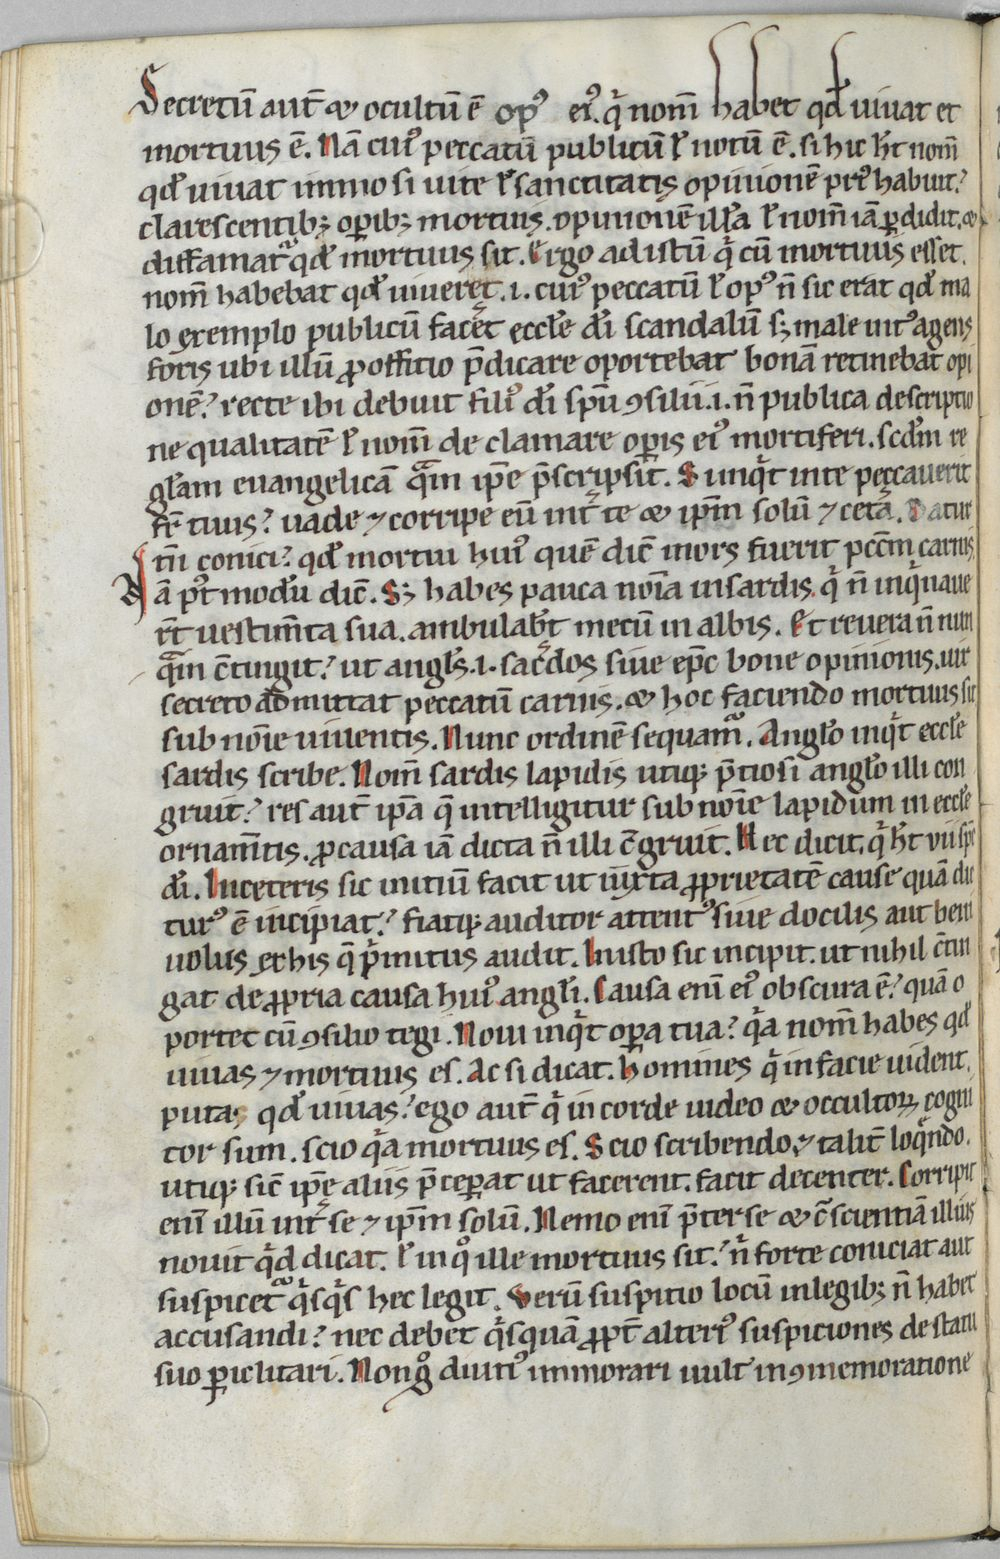 Secretū aut̄ & ocultū ē opꝰ eiꝰ. q̇ nom̄ habet qđ uiuat et
mortuus ē. Nā cuiꝰ peccatū publicū ł notū ē. si hic ht̄ nom̄
qđ uiuat immo si uite ł sanctitatis opinionē priꝰ habuit?
clarescentibꝫ opibꝫ mortuis. opinionē illā ł nom̄ iā ꝑdidit. &
diffamat̉ qđ mortuus sit. Ergo ad istū q̇ cū mortuus esset.
nom̄ habebat qđ uiueret .i. cuiꝰ peccatū ł opꝰ n̄ sic erat qđ ma
lo exemplo publicū faceret eccłe dī scandalū sꝫ male intꝰ agens
foris ubi illū ꝓ offitio p̄dicare oportebat bonā retinebat opi
onē? recte ibi debuit filiꝰ dī spū ꝯsilii .i. n̄ publica descriptio
ne qualitatē ł nom̄ de clamare oꝑis eiꝰ mortiferi. scđm re
głam euangelicā quā ip̄e p̄scripsit. Si inq̇t in te peccauerit
fr̄ tuus? uade ⁊ corripe eū int̄ te & ip̄m solū ⁊ cetā. Datur
tm̄ conici? qđ mortui huiꝰ quē dic̄ mors fuerit pccm̄ carnis
Nā pꝰt modū dic̄. Sꝫ habes pauca noīa in sardis q̇ n̄ inq̇naue
rt̄ uestim̄ta sua. ambulabt̄ mecū in albis. Et reuera n̄ nun
quā ꝯtingit? ut angłs .i. sac̄dos siue ep̄c bone opinionis. uir
secreto admittat peccatū carnis. & hoc faciendo mortuus sit
sub noīe uiuentis. Nunc ordinē sequam̉. Angło inq̇t eccłe
sardis scribe. Nom̄ sardis lapidis utiqꝫ p̄tiosi angło illi con
gruit? res aut̄ ip̄a q̄ intelligitur sub noīe lapidum in eccłe
ornam̄tis. ꝓ causa iā dicta n̄ illi ꝯgruit. Nec dicit. q̇ ht̄ vii sp̄c
dī. In ceteris sic initiū facit ut iuxta ꝓprietatē cause quā dic
turꝰ ē incipiat? fiatqꝫ auditor attentꝰ siue docilis aut beni
uolus ex his q̄ ṗmitus audit. In isto sic incipit. ut nihil ꝯtin
gat de ꝓpria causa huiꝰ angłi. Causa enī eiꝰ obscura ē? quā o
portet cū ꝯsilio tegi. Noui inq̇t oꝑa tua? q̇a nom̄ habes qđ
uiuas ⁊ mortuus es. Ac si dicat. Homines q̇ in facie uident.
puta qđ uiuas? ego aut̄ q̇ in corde uideo & occultoꝝ cogni
tor sum. scio q̇a mortuus es. Scio scribendo. ⁊ talit̄ loq̄ndo.
utiqꝫ sic̄ ip̄e aliis p̄ceꝑat ut facerent. facit decenter. Corripit
enī illū int̄ se ⁊ ip̄m solū. Nemo enī p̄ter se & ꝯscientiā illius
nouit q̇d dicat. ł in qͦ ille mortuus sit? n̄ forte coniciat aut
suspicet̉ q̇sq̇s hec legit. Verū suspitio locū in legibꝫ n̄ habet
accusandi? nec debet q̇squā ꝓpt̄ alteriꝰ suspiciones de statu
suo ꝑiclitari. Non gͦ diutiꝰ immorari uult in ꝯmemoratione